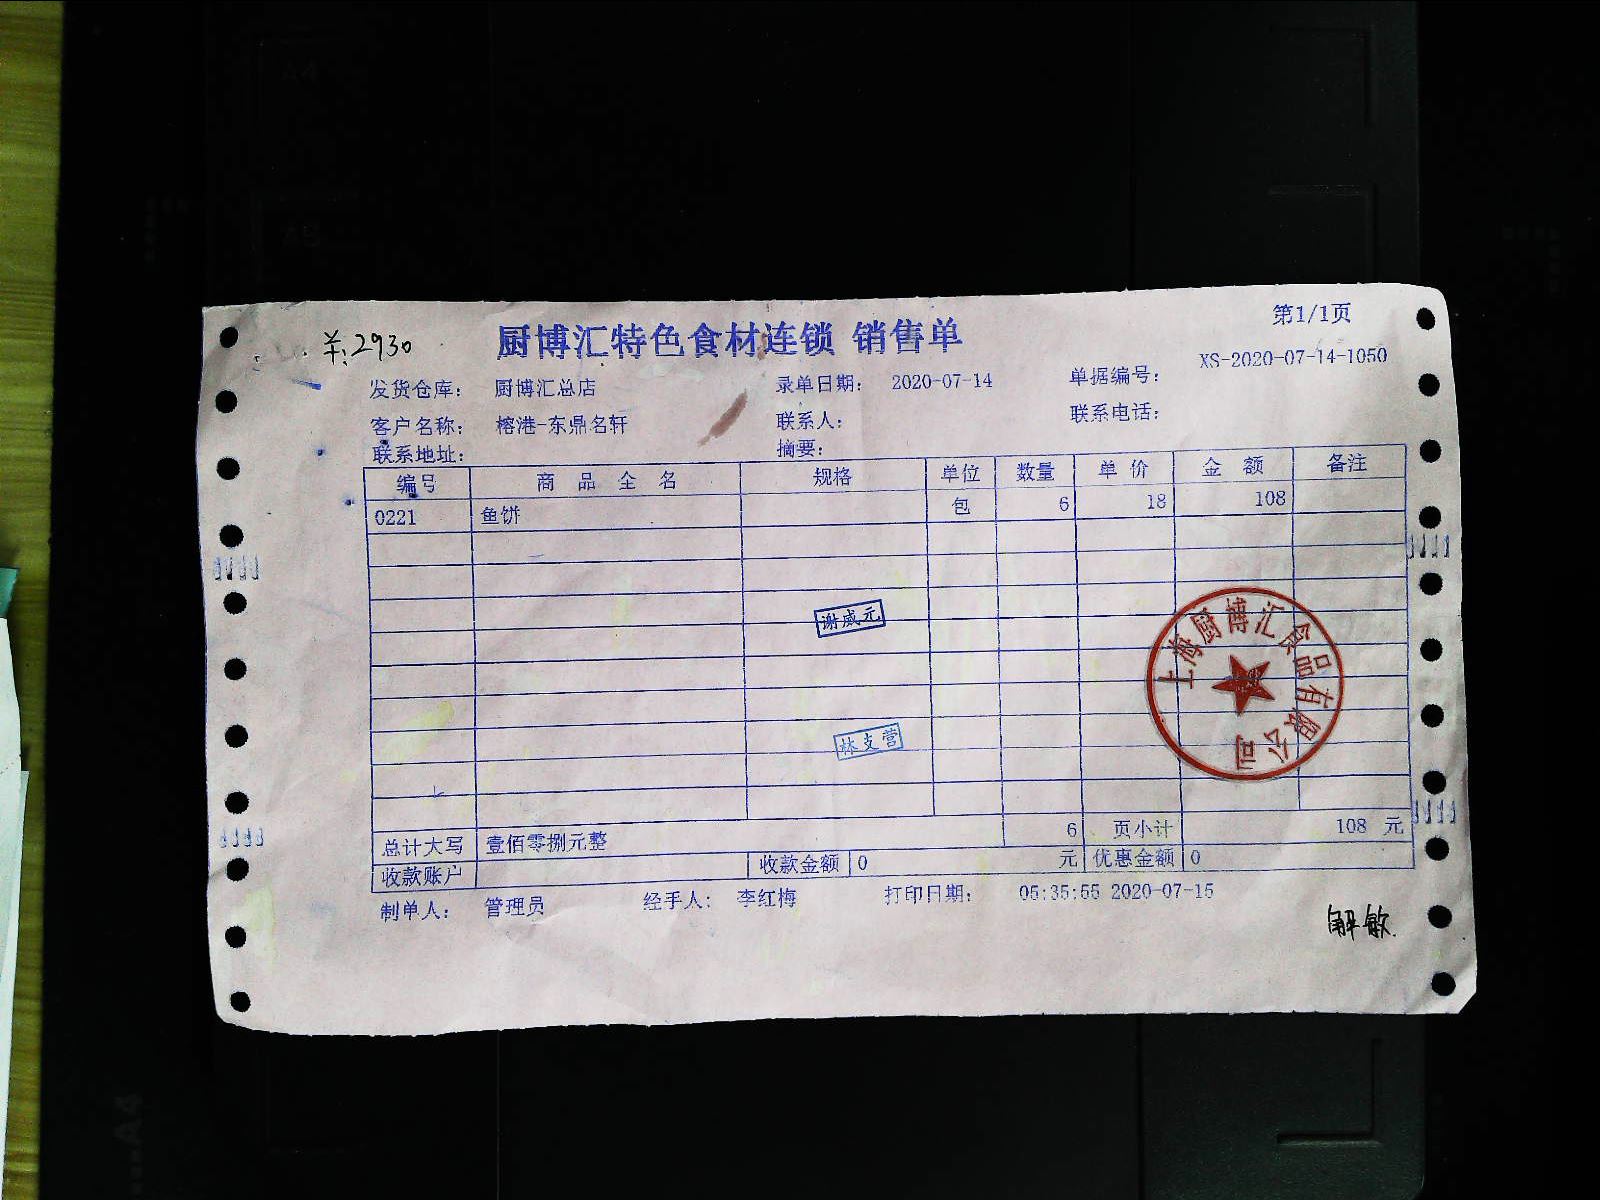 第1/1页
羊:2930
厨博汇特色食材连锁 销售单
发货仓库: 厨博汇总店 录单日期: 2020-07-14 单据编号: XS-2020-07-14-1050
客户名称: 榕港-东鼎名轩 联系人: 联系电话:
联系地址: 摘要:
编号 商品全名 规格 单位 数量 单价 金额 备注
0221 鱼饼 包 6 18 108
谢威元
上海厨博汇食品有限公司
林支营
总计大写 壹佰零捌元整 6 页小计 108 元
收款账户 收款金额 0 元 优惠金额 0
制单人: 管理员 经手人: 李红梅 打印日期: 05:35:55 2020-07-15
解敏